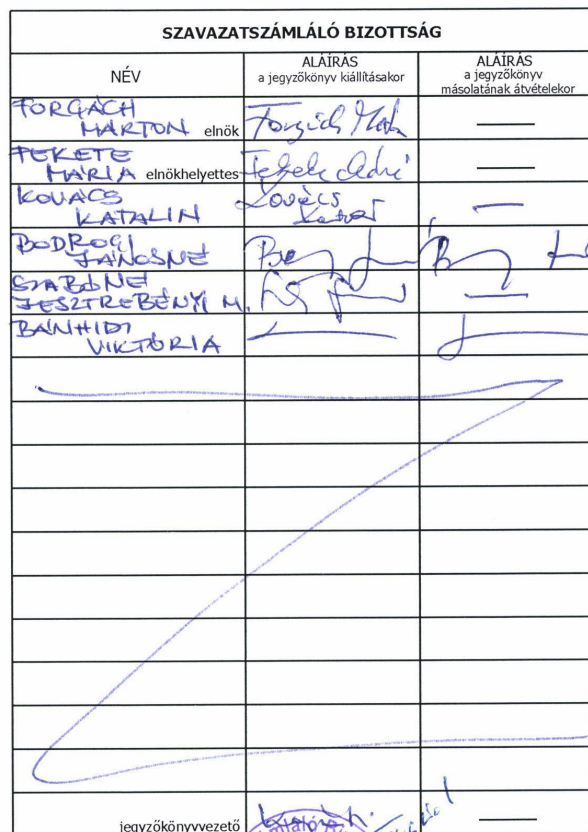 SZAVAZATSZÁMLÁLÓ BIZOTTSÁG
NÉV
ALÁÍRÁS
a jegyzőkönyv kiállításakor
ALÁÍRÁS
a jegyzőkönyv
másolatának átvételekor
FORGÁCH
MÁRTON elnök
FEKETE
MÁRIA elnökhelyettes
KOVÁCS
KATALIN
Kovács
BODROGI
JÁNOSNÉ
SZABÓNÉ
JESZTREBÉNYI M.
BÁNHIDI
VIKTÓRIA
jegyzőkönyvvezető